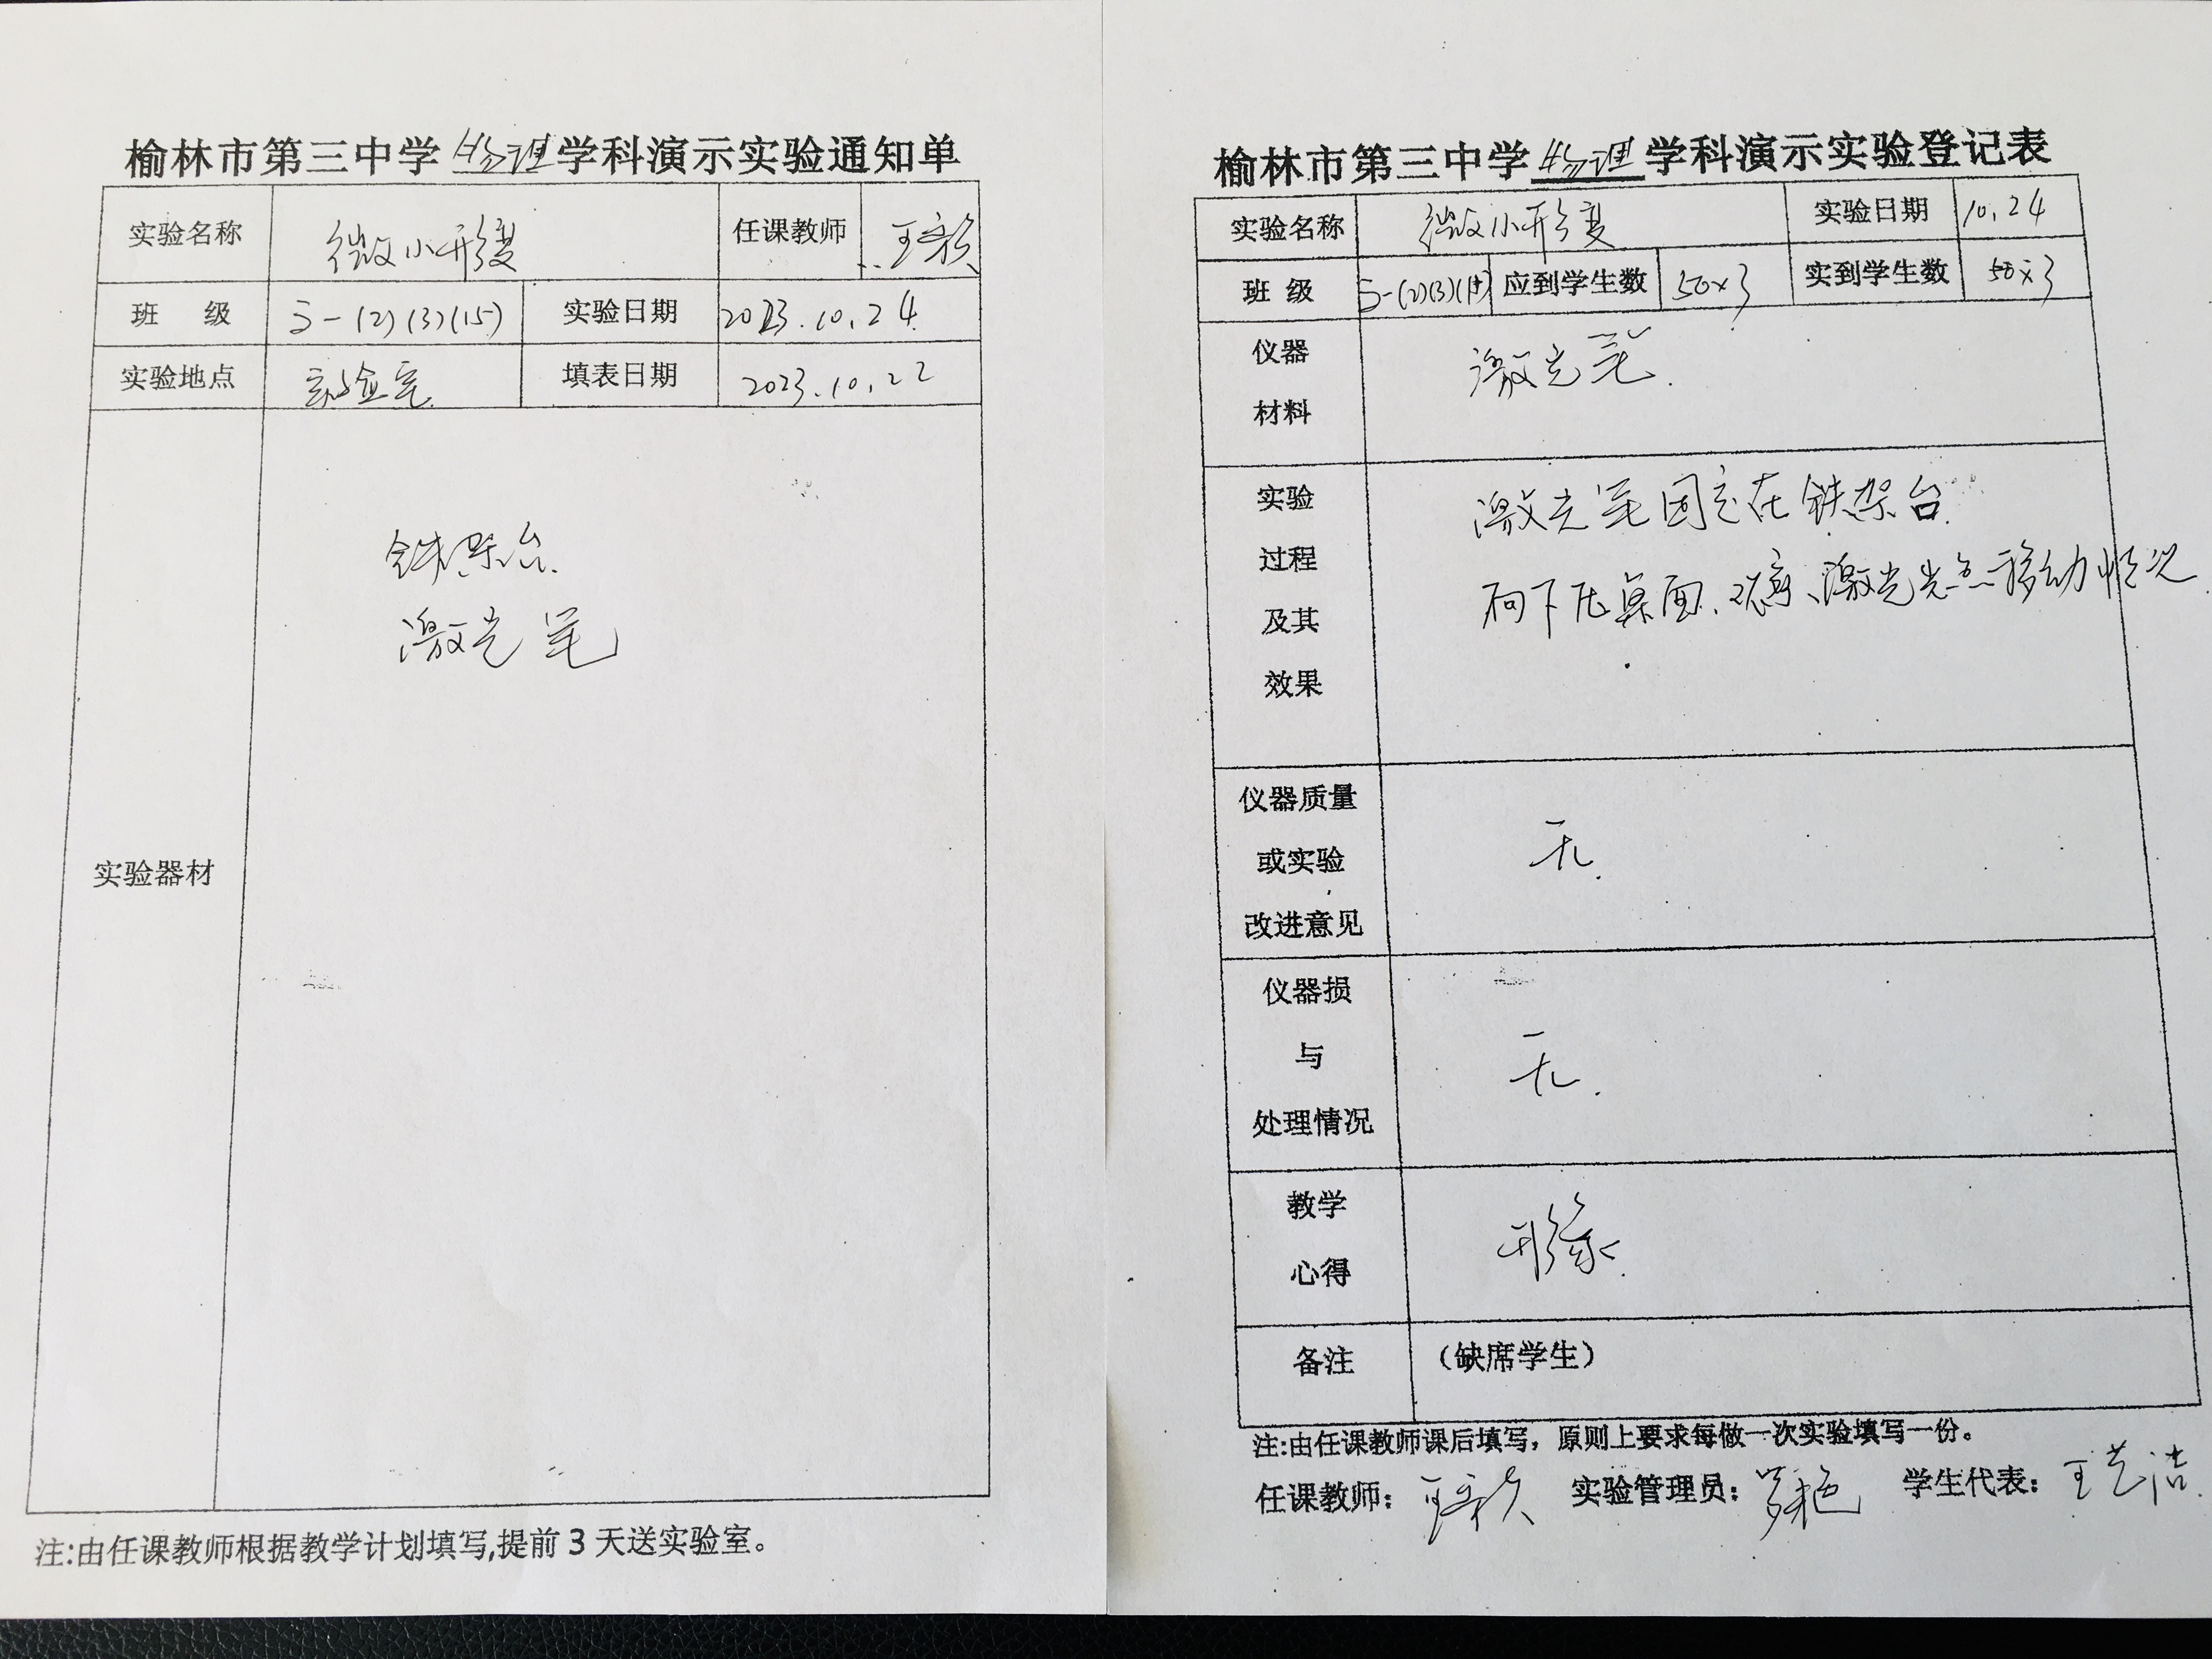 榆林市第三中学物理学科演示实验通知单
实验名称 微小形变 任课教师
班 级 高一(2)(3)(15) 实验日期 2023.10.24
实验地点 实验室 填表日期 2023.10.22
实验器材
铁架台
激光笔
注:由任课教师根据教学计划填写,提前3天送实验室。
榆林市第三中学物理学科演示实验登记表
实验名称 微小形变 实验日期 10.24
班 级 高一(2)(3) 应到学生数 50×3 实到学生数 50×3
仪器
材料
激光笔.
实验
过程
及其
效果
激光笔固定在铁架台.
向下压桌面、观察、激光光点移动情况
仪器质量
或实验
改进意见
无.
仪器损
与
处理情况
无.
教学
心得
形象.
备注 (缺席学生)
注:由任课教师课后填写，原则上要求每做一次实验填写一份。
任课教师: 实验管理员: 学生代表: 王艺洁.